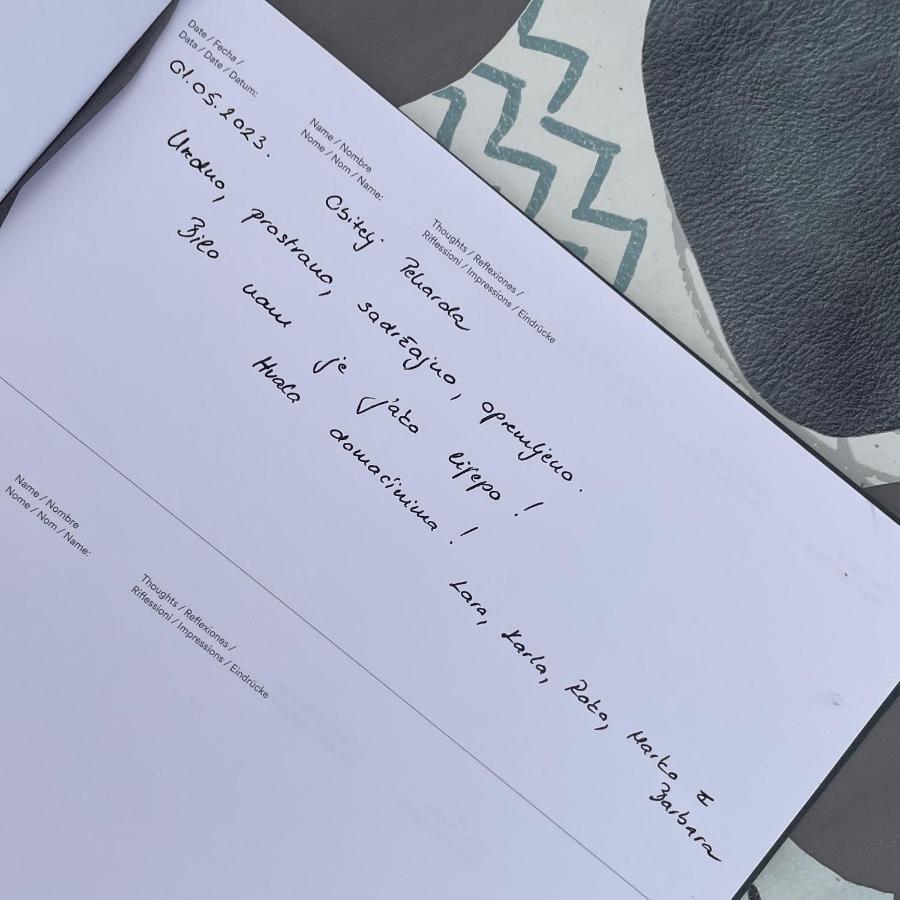 Date / Fecha /
Data / Date / Datum:
01.05.2023.
Name / Nombre
Nome / Nom / Name:
Obitelj Peharda
Thoughts / Reflexiones /
Riflessioni / Impressions / Eindrücke
Uredno, prostrano, sadržajno, opremljeno.
Bilo nam je jako lijepo!
Hvala domaćinima!
Lara, Karla, Roko, Marko I
Barbara
Name / Nombre
Nome / Nom / Name:
Thoughts / Reflexiones /
Riflessioni / Impressions / Eindrücke